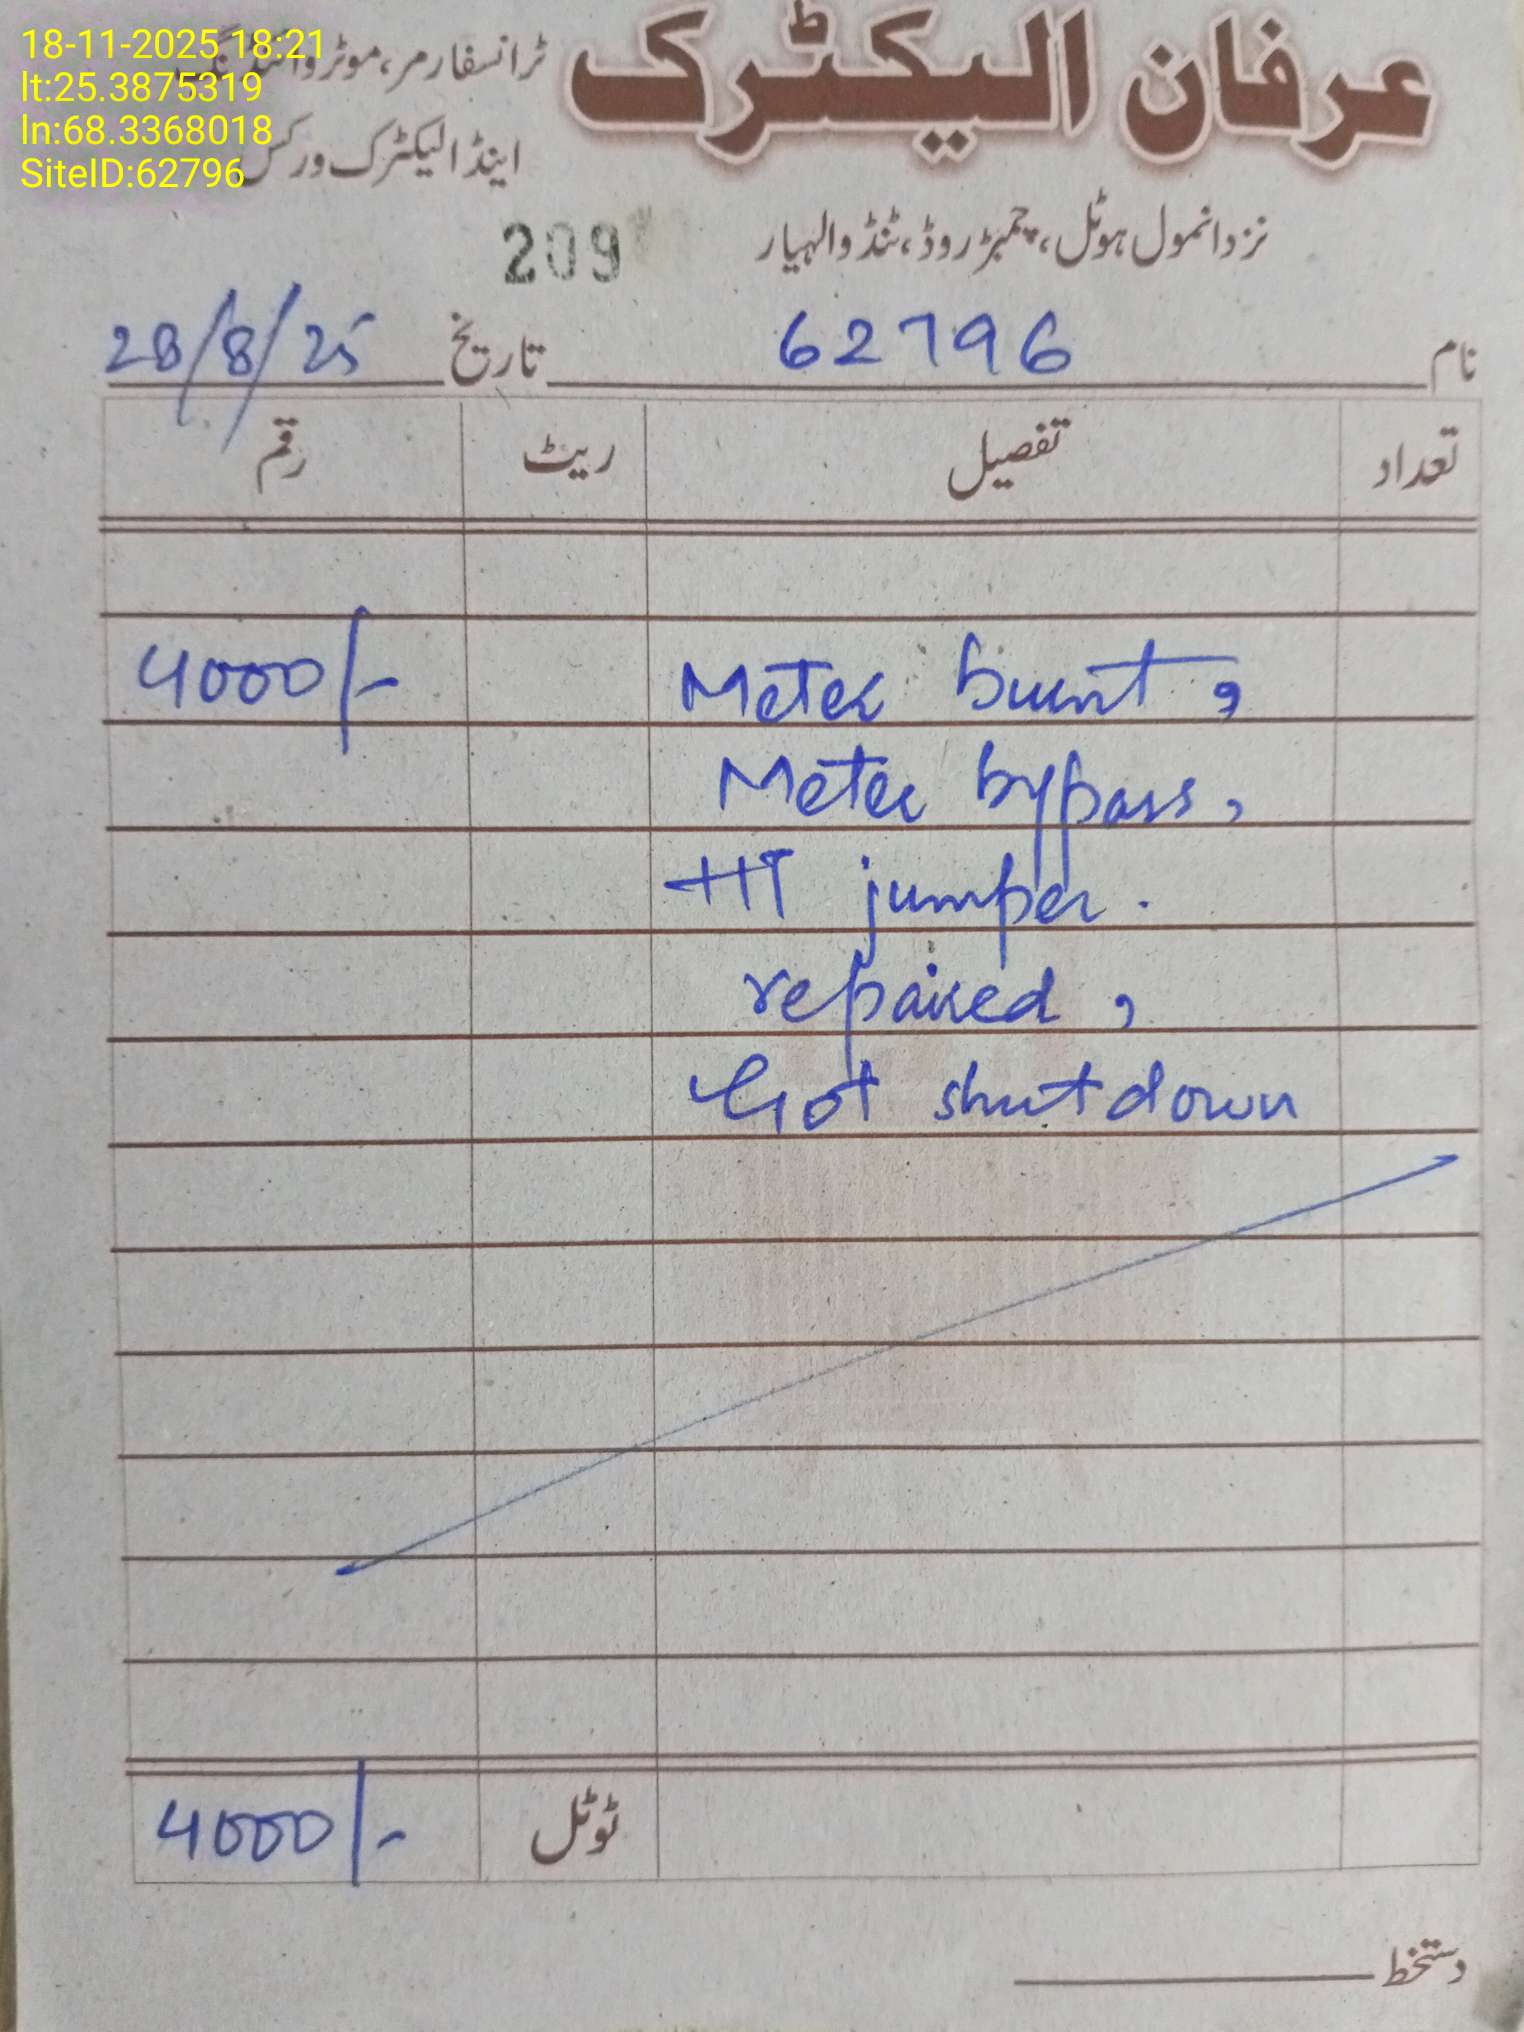 18-11-2025 18:21
lt:25.3875319
ln:68.3368018
SiteID:62796
عرفان الیکٹرک
ٹرانسفارمر، موٹر وائنڈنگ
اینڈ الیکٹرک ورکس
نزد انمول ہوٹل، چمبڑ روڈ، ٹنڈوالہیار
209
نام 62796 تاریخ 28/8/25
تعداد تفصیل ریٹ رقم
Meter burnt, 4000/-
Meter bypass,
HT jumper.
repaired,
Got shutdown
ٹوٹل 4000/-
دستخط